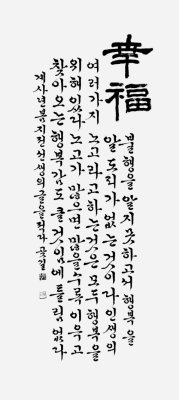 幸福
불행을 알지 못하고서 행복을
알 도리가 없는 것이다 인생의
여러가지 노고라고 하는 것은 모두 행복을
위해 있다 노고가 많으면 많을수록 이윽고
찾아오는 행복감도 클 것임에 틀림없다
계사년 봄 지전선생의 글을 적다